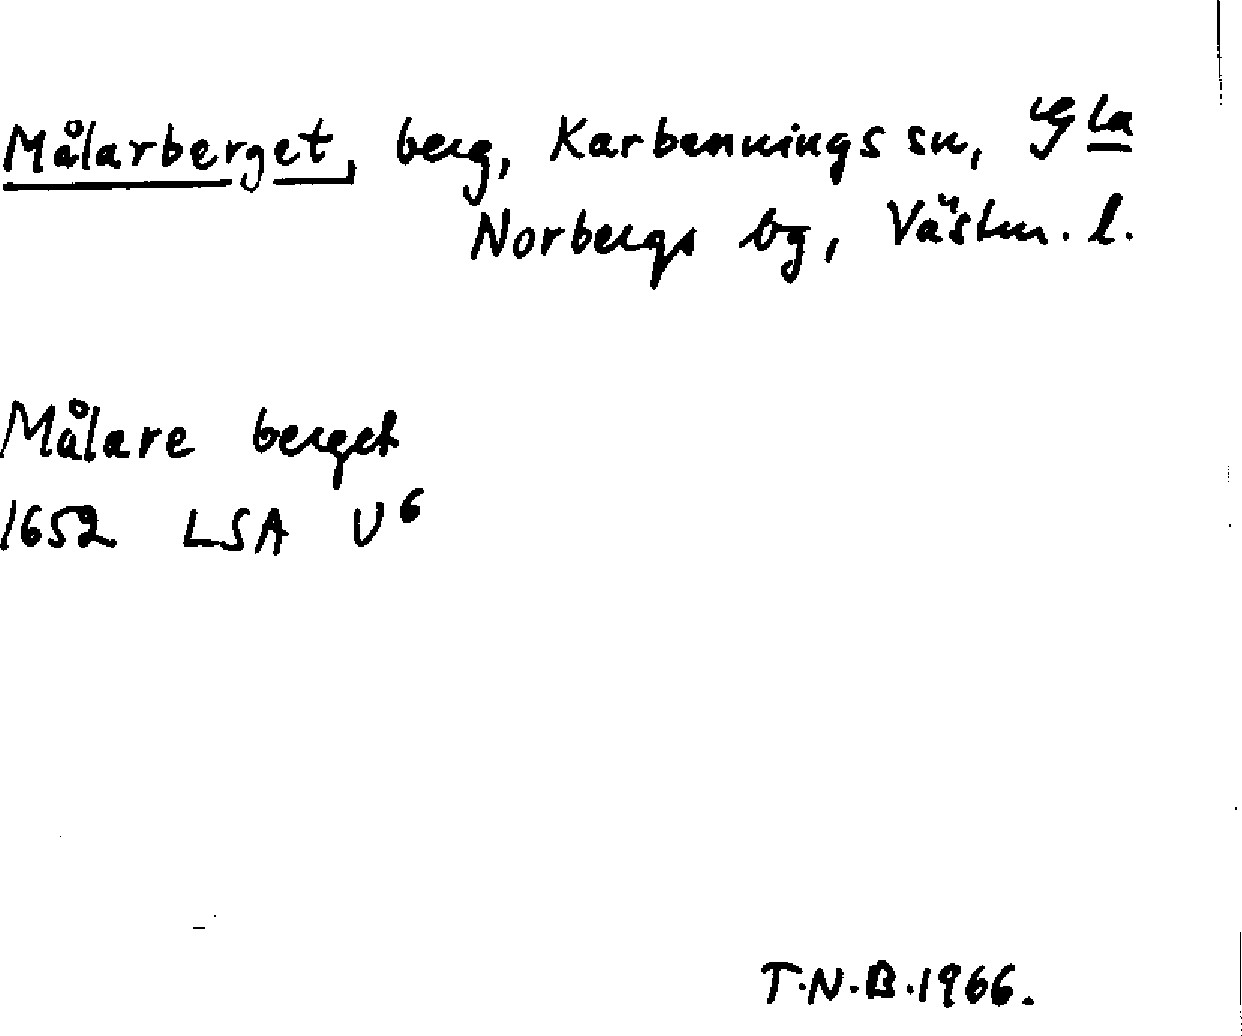 Målarberget, berg, Karbennings sn, Gla
Norbergs bg, Västm. l.
Målare berget
1652 LSA U6
T.N.B.1966.